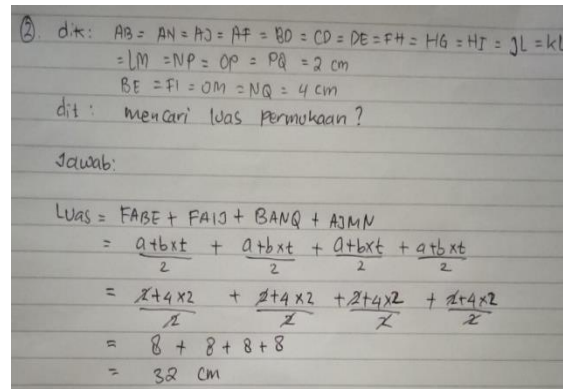 ② dik: AB = AN = AJ = AF = BD = CD = DE = FH = HG = HI = JL = KL
= LM = NP = OP = PQ = 2 cm
BE = FI = OM = NQ = 4 cm
dit: mencari luas permukaan?
Jawab:
Luas = FABE + FAIJ + BANQ + AJMN
= a+b×t/2 + a+b×t/2 + a+b×t/2 + a+b×t/2
= 2+4×2/2 + 2+4×2/2 + 2+4×2/2 + 2+4×2/2
= 8 + 8 + 8 + 8
= 32 cm